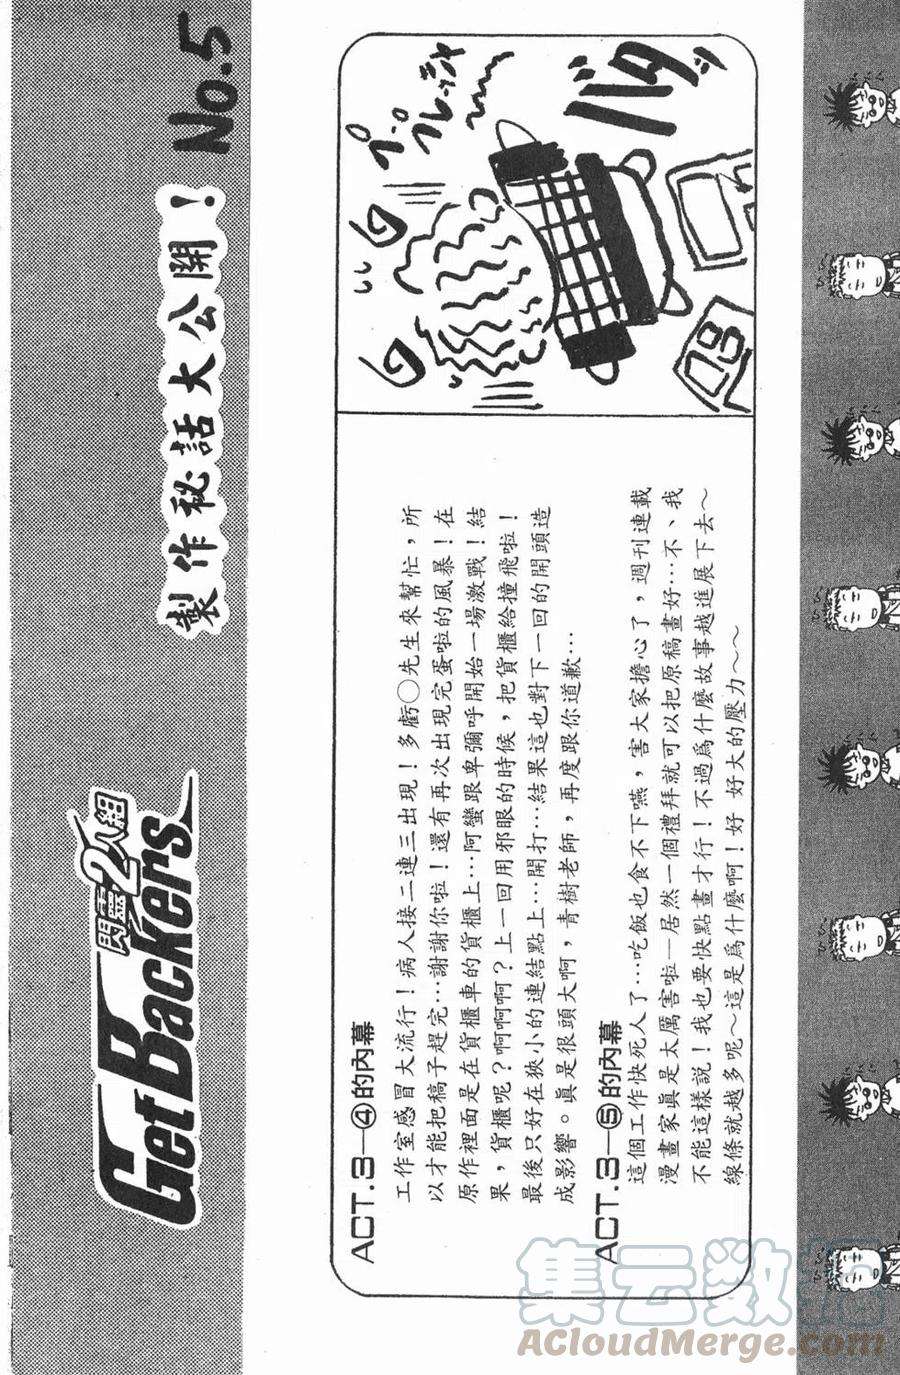 閃靈2人組
GetBackers
製作秘話大公開！
No.5
ACT.3—④的內幕
工作室感冒大流行！病人接二連三出現！多虧○先生來幫忙，所
以才能把稿子趕完…謝謝你啦！還有再次出現完蛋啦的風暴！在
原作裡面是在貨櫃車的貨櫃上…阿蠻跟卑彌呼開始一場激戰！結
果，貨櫃呢？啊啊啊？上一回用邪眼的時候，把貨櫃給撞飛啦！
最後只好在狹小的連結點上…開打…結果這也對下一回的開頭造
成影響。真是很頭大啊，青樹老師，再度跟你道歉…
ACT.3—⑤的內幕
這個工作快死人了…吃飯也食不下嚥，害大家擔心了，週刊連載
漫畫家真是太厲害啦—居然一個禮拜就可以把原稿畫好…不、我
不能這樣說！我也要快點畫才行！不過為什麼故事越進展下去～
線條就越多呢～這是為什麼啊！好、好大的壓力～～
バタッ
集云数据
ACloudMerge.com